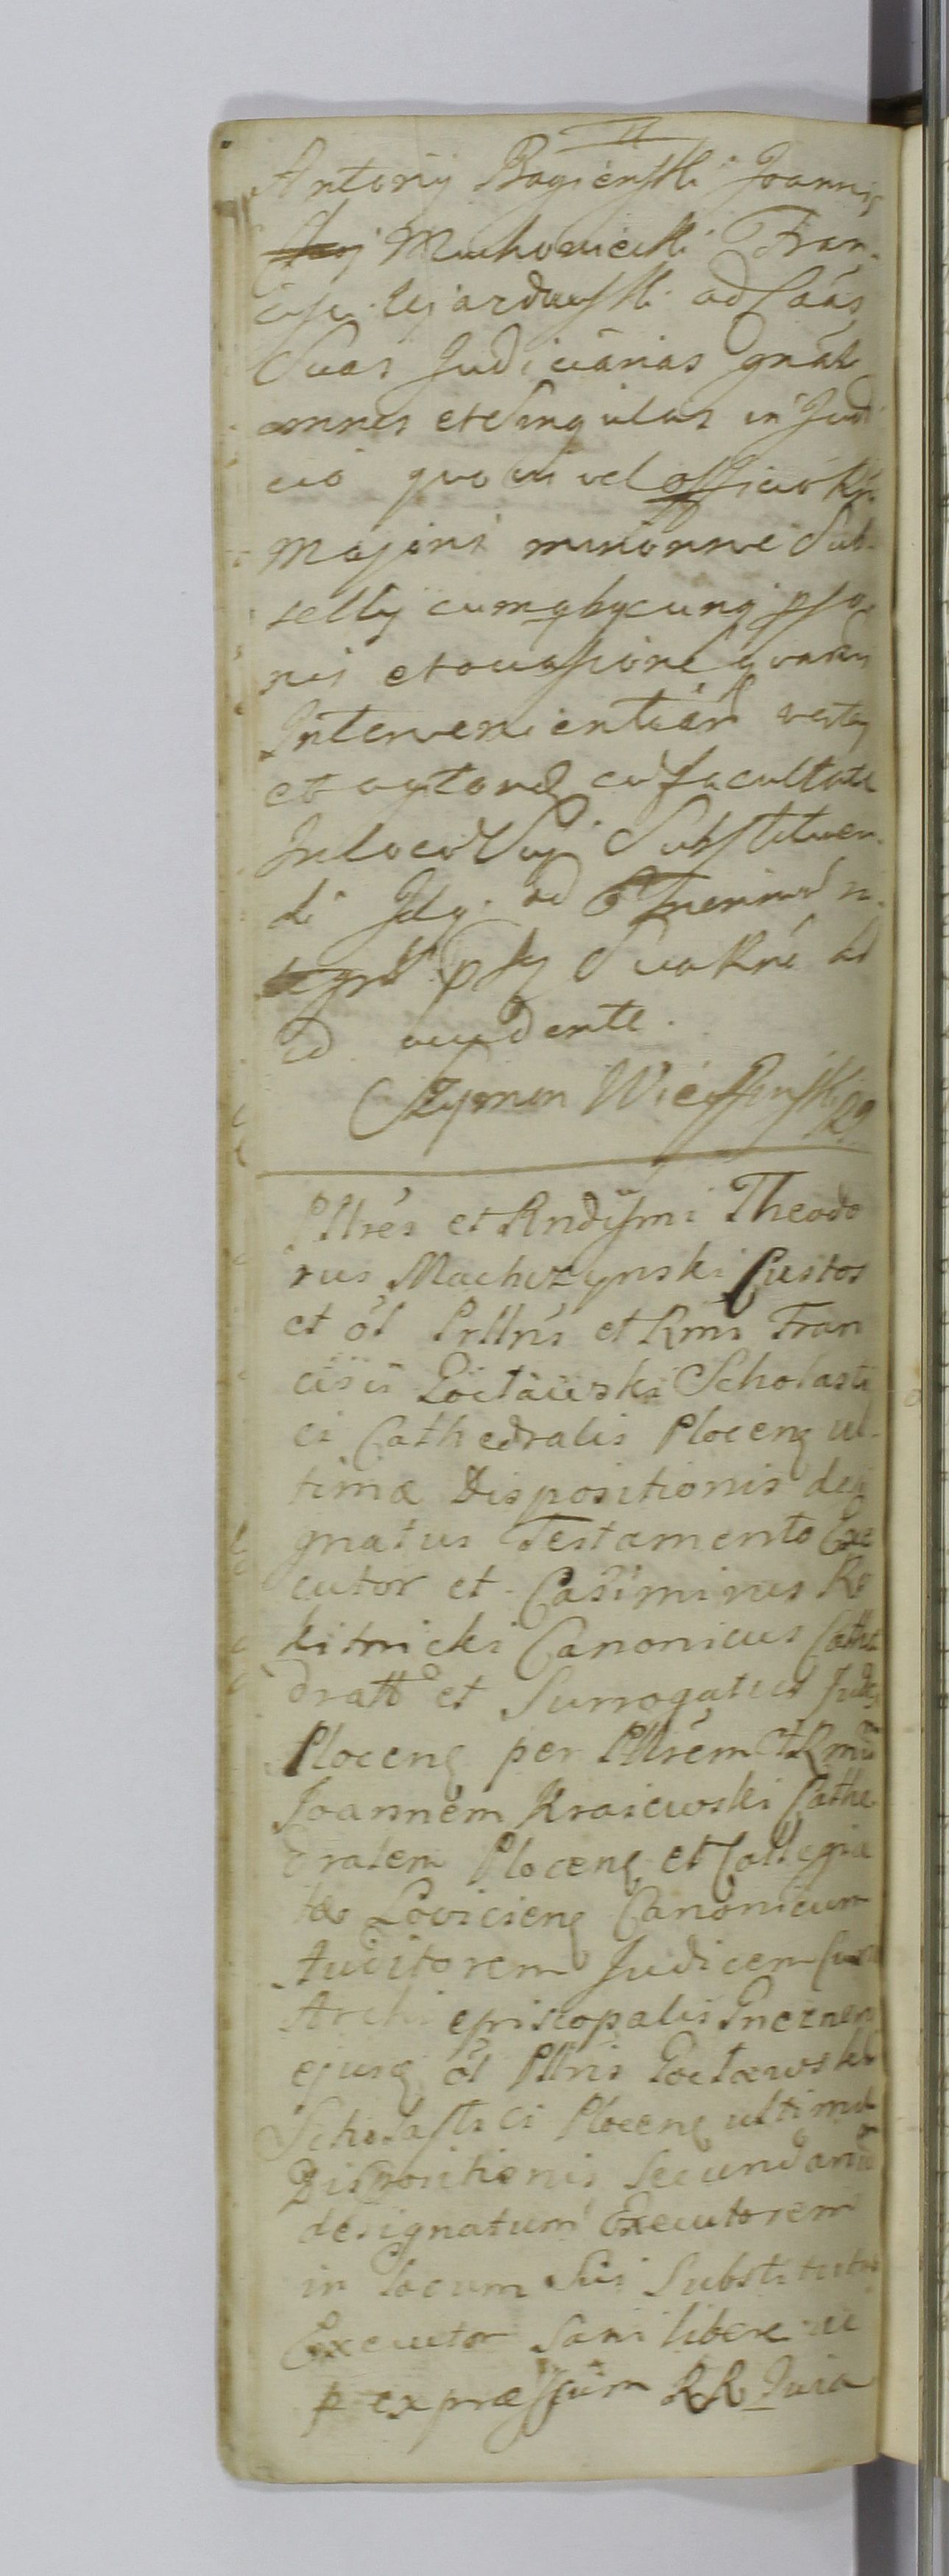 Antonij Bagienski Joannis
Muchowiecki Fran-
cisci Ujazdowski ad Caas
Suas Judiciarias gnal
omnes et Singulas in Judi
cio quovis vel officio Rgni
Majoris minorisve Sub-
sellij cumqbycunq pso-
nis et occasione quarum
Intervenientiam
et actand cu facultate
In locu Sui Substituen-
di Idq. ad
Sua Rne ad
id accedente.
Szymon
Pllres et Rndissmi Theodo
rus Machczynski Custos
et ol Prllris et Rmi Fran
cisci Zoctawski Scholasti
ci Cathedralis Plocenq ul-
timæ Dispositionis desi
gnatus Testamento Exe
cutor et Casimirus Ro
kitnicki Canonicus Cathe
dratt et Surrogatus Judex
Plocenq per Pllrem et Rmu
Joannem Kraiewski Cathe
dralem Plocenq et Collegia
tæ Lovicienq Canonicum
Auditorem Judicem Curiæ
Archi episcopalis Gneznen
ejusq ol Pllris Zoctawski
Scholastici Plocenq ultimæ
Dispositionis Secundariu
designatum Executorem
in Locum Sui Substitutus
Executor Sani libere ac
p expræssum RR Jura